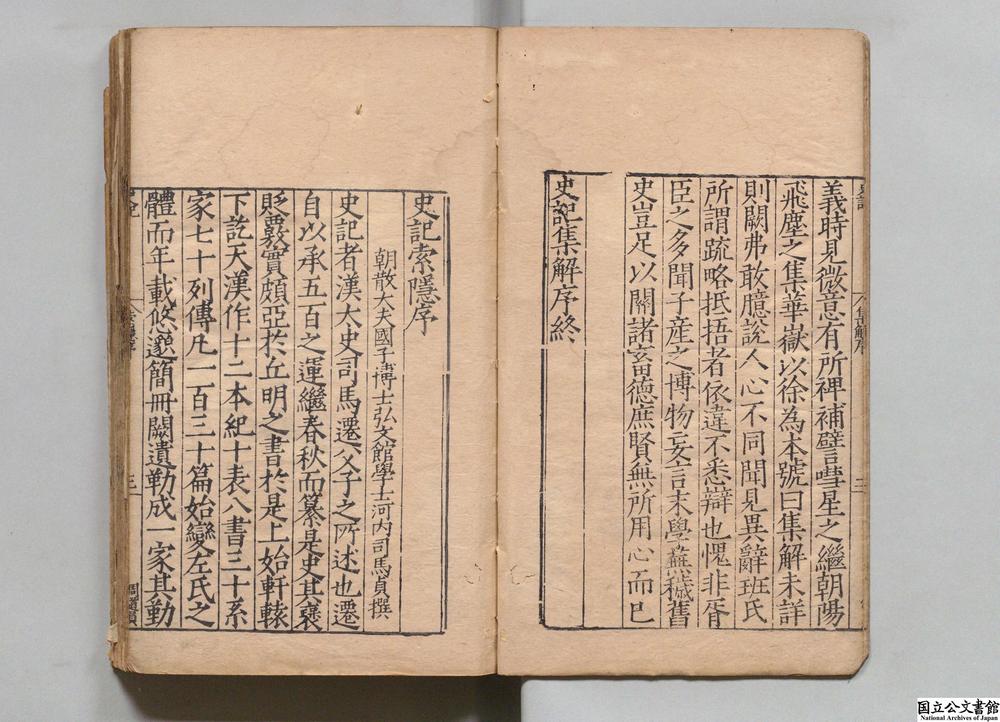 義時見微意有所裨補譬嘒星之繼朝陽
飛塵之集華嶽以徐為本號曰集解未詳
則闕弗敢臆說人心不同聞見異辭班氏
所謂疏略抵捂者依違不悉辯也愧非胥
臣之多聞子產之博物妄言末學蕪穢舊
史豈足以關諸畜德庶賢無所用心而已
史記集解序終
史記索隱序
朝散大夫國子博士弘文館學士河內司馬貞撰
史記者漢太史司馬遷父子之所述也遷
自以承五百之運繼春秋而纂是史其襃
貶覈實頗亞於丘明之書於是上始軒轅
下訖天漢作十二本紀十表八書三十系
家七十列傳凡一百三十篇始變左氏之
體而年載悠邈簡冊闕遺勒成一家其勤
三
国立公文書館
National Archives of Japan